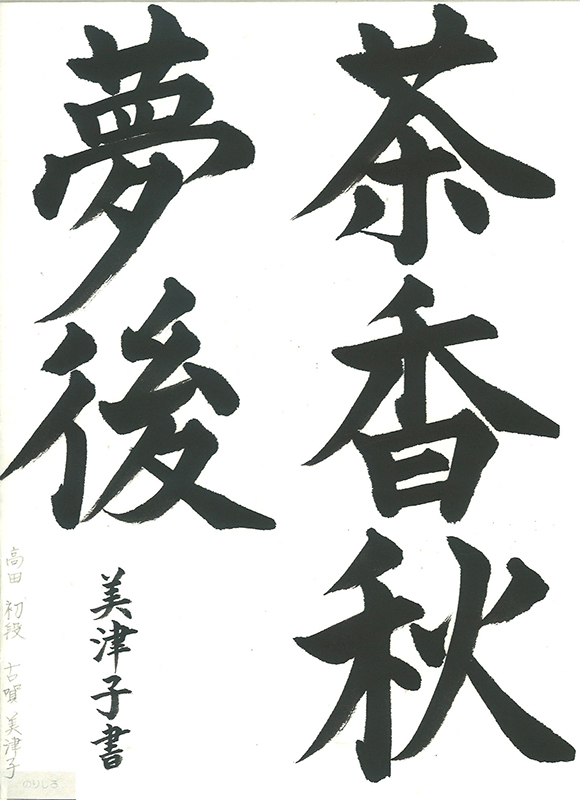 茶香秋
夢後
美津子書
高田 初段 古賀 美津子
のりしろ